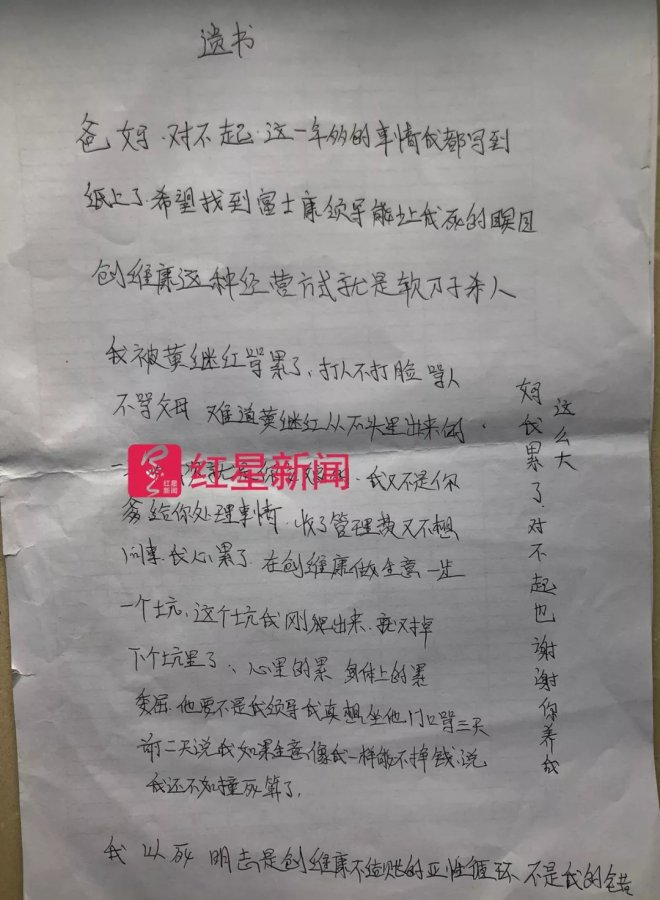 遗书
爸 妈.对不起.这一年多的事情我都写到
纸上了.希望找到富士康领导能让我死的瞑目
创维康这种经营方式就是软刀子杀人
我被黄继红骂累了,打人不打脸 骂人
不骂父母 难道黄继红从石头里出来的.
我又不是你
爹给你处理事情.收了管理费又不想
问事.我心累了.在创维康做生意一生
一个坑,这个坑我刚爬出来.就又掉
下个坑里了、心里的累 身体上的累
委屈.他要不是我领导我真想坐他门口骂三天
前二天说我如果生意像我一样能不掉钱,说
我还不如撞死算了.
我 以死 明志是创维康不结账的亚性循环 不是我的错
妈我累了.对不起也谢谢你养我
这么大
红星新闻
红星
新闻